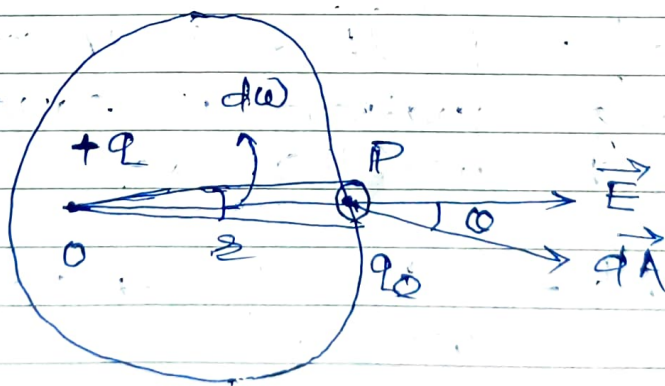 dω
+q
P
E
O
r
θ
q₀
dA